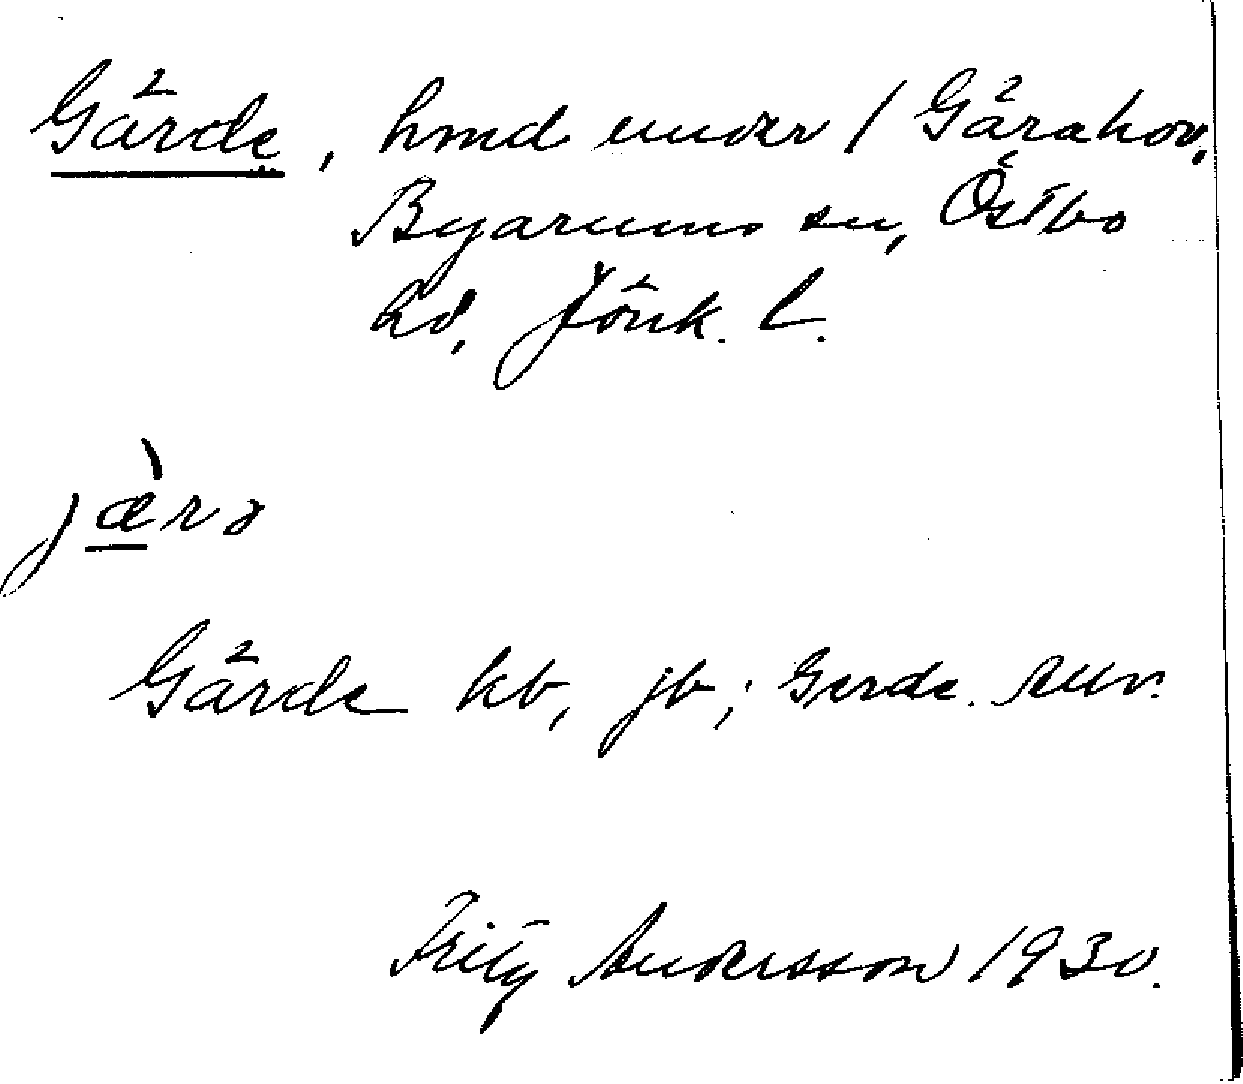 Gärde, hmd under 1 Gårahov,
Byarums sn, Östbo
hd, Jönk. l.
jærə
Gärde kb, jb; Gerde.
Fritz Andersson 1930.